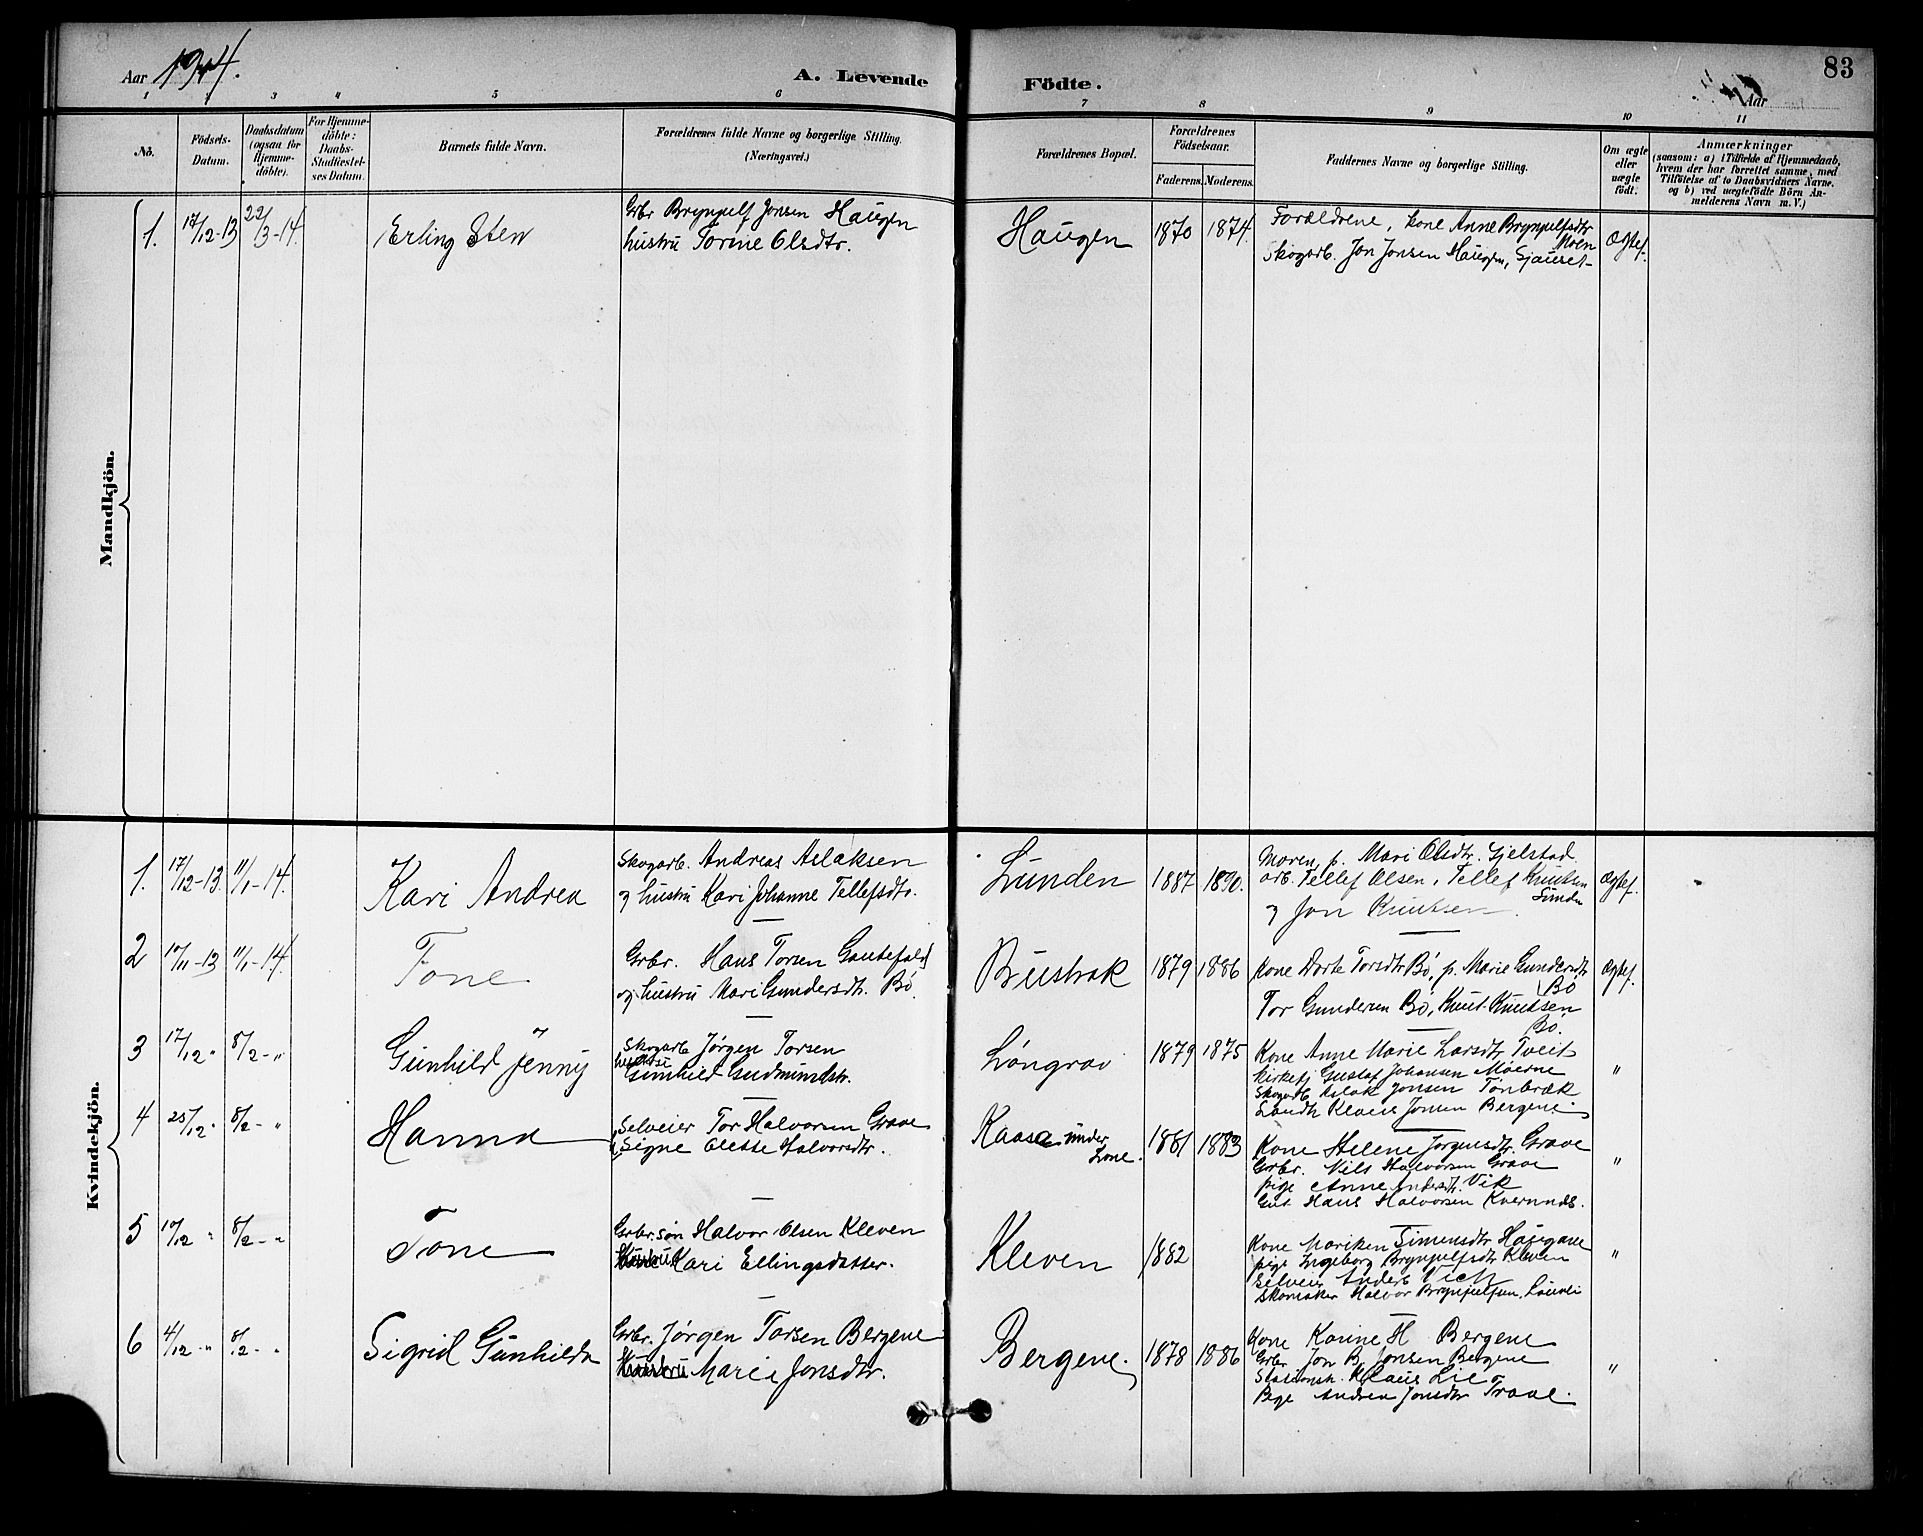 Aar 1914.
A. Levende Födte.
Aar
83
1 2 3 4 5 6 7 8 9 10 11
No.
Födsels-Datum.
Daabsdatum (ogsaa for Hjemme-döbte).
For Hjemme-döbte: Daabs-Stadfæstel-ses Datum.
Barnets fulde Navn.
Forældrenes fulde Navne og borgerlige Stilling.
(Næringsvei.)
Forældrenes Bopæl.
Forældrenes Födselsaar.
Faderens. Moderens.
Faddernes Navne og borgerlige Stilling.
Om ægte eller uægte födt.
Anmærkninger
(saasom: a) i Tilfælde af Hjemmedaab,
hvem der har forrettet samme, med
Tilföielse af to Daabsvidners Navne.
og b) ved uægtefödte Börn An-
melderens Navn m. V.)
Mandkjön.
1. 17/12-13 22/3-14. Erling Sten
Grbr Brynjulf Jonsen Haugen
hustru Torine Olsdtr.
Haugen 1870 1874.
Forældrene, kone Anne Brynjulfsdtr
Moen
Skogarb. Jon Jonsen Haugen, Gjauset-
Ægtef.
Kvindekjön.
1. 17/12-13. 11/1-14. Kari Andrea
Skogarb. Andreas Aslaksen
og hustru Kari Johanne Tellefsdtr.
Lunden 1887 1890.
Moren, p. Mari Olsdtr. Gjelstad
arb. Tellef Olsen, Tellef Knutsen
Lunden
og Jon Knutsen
Ægtef.
2 17/11-13 11/1-14. Tone
Grbr. Hans Torsen Gautefald
og hustru Mari Gundersdtr. Bö.
Bustrak 1879 1886
Kone Dorte Torsdtr Bö, p. Marie Gundersdtr
Bö
Tor Gundersen Bö, Knut Knutsen
Bö.
Ægtef.
3 17/12 " 8/2- " Gunhild Jenny
Skogarb Jörgen Torsen
hustru
Gunhild Gudmundstr.
Löngrav 1879 1875
Kone Anne Marie Larsdtr Tveit
Kirkesj Gustaf Johansen Moerne
Skogarb Aslak Jonsen Tönbræk
Landh Klaus Jonsen Bergene
"
4 25/12 " 8/2- " Hanna
Selveier Tor Halvorsen Grave
Signe Olette Halvorsdtr.
Kaasa under
Lone. 1881 1883
Kone Helene Jörgensdtr. Grave
Grbr. Nils Halvorsen Grave
pige Anne Andersdtr. Vik
Gut Hans Halvorsen Kvernnds.
"
5 17/12 " 8/2- " Tone
Grbr.sön Halvor Olsen Kleven
Kari Ellingsdatter.
Kleven 1882
Kone Mariken Simensdtr
pige Ingeborg Brynjulfsdtr Kleven
Selveier Anders Vich
Skomaker Halvor Brynjulfsen,
"
6 4/12 " 8/2- " Sigrid Gunhilda
Grbr. Jörgen Torsen Bergene
Mari Jonsdtr.
Bergene. 1878 1886
Kone Karine H Bergene
Grbr Jon B. Jonsen Bergene
Klaus Lie
Pige Andrea Jonsdtr Traae.
"